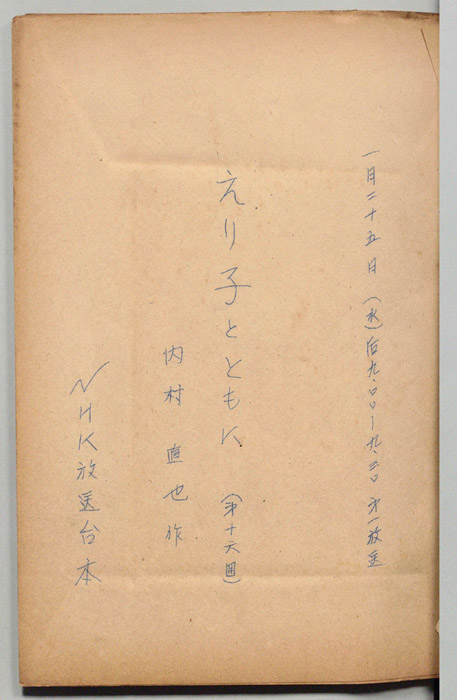 一月二十五日（水）后九.〇〇―九.三〇 第一放送
えり子とともに（第十六囬）
内村直也作
NHK放送台本